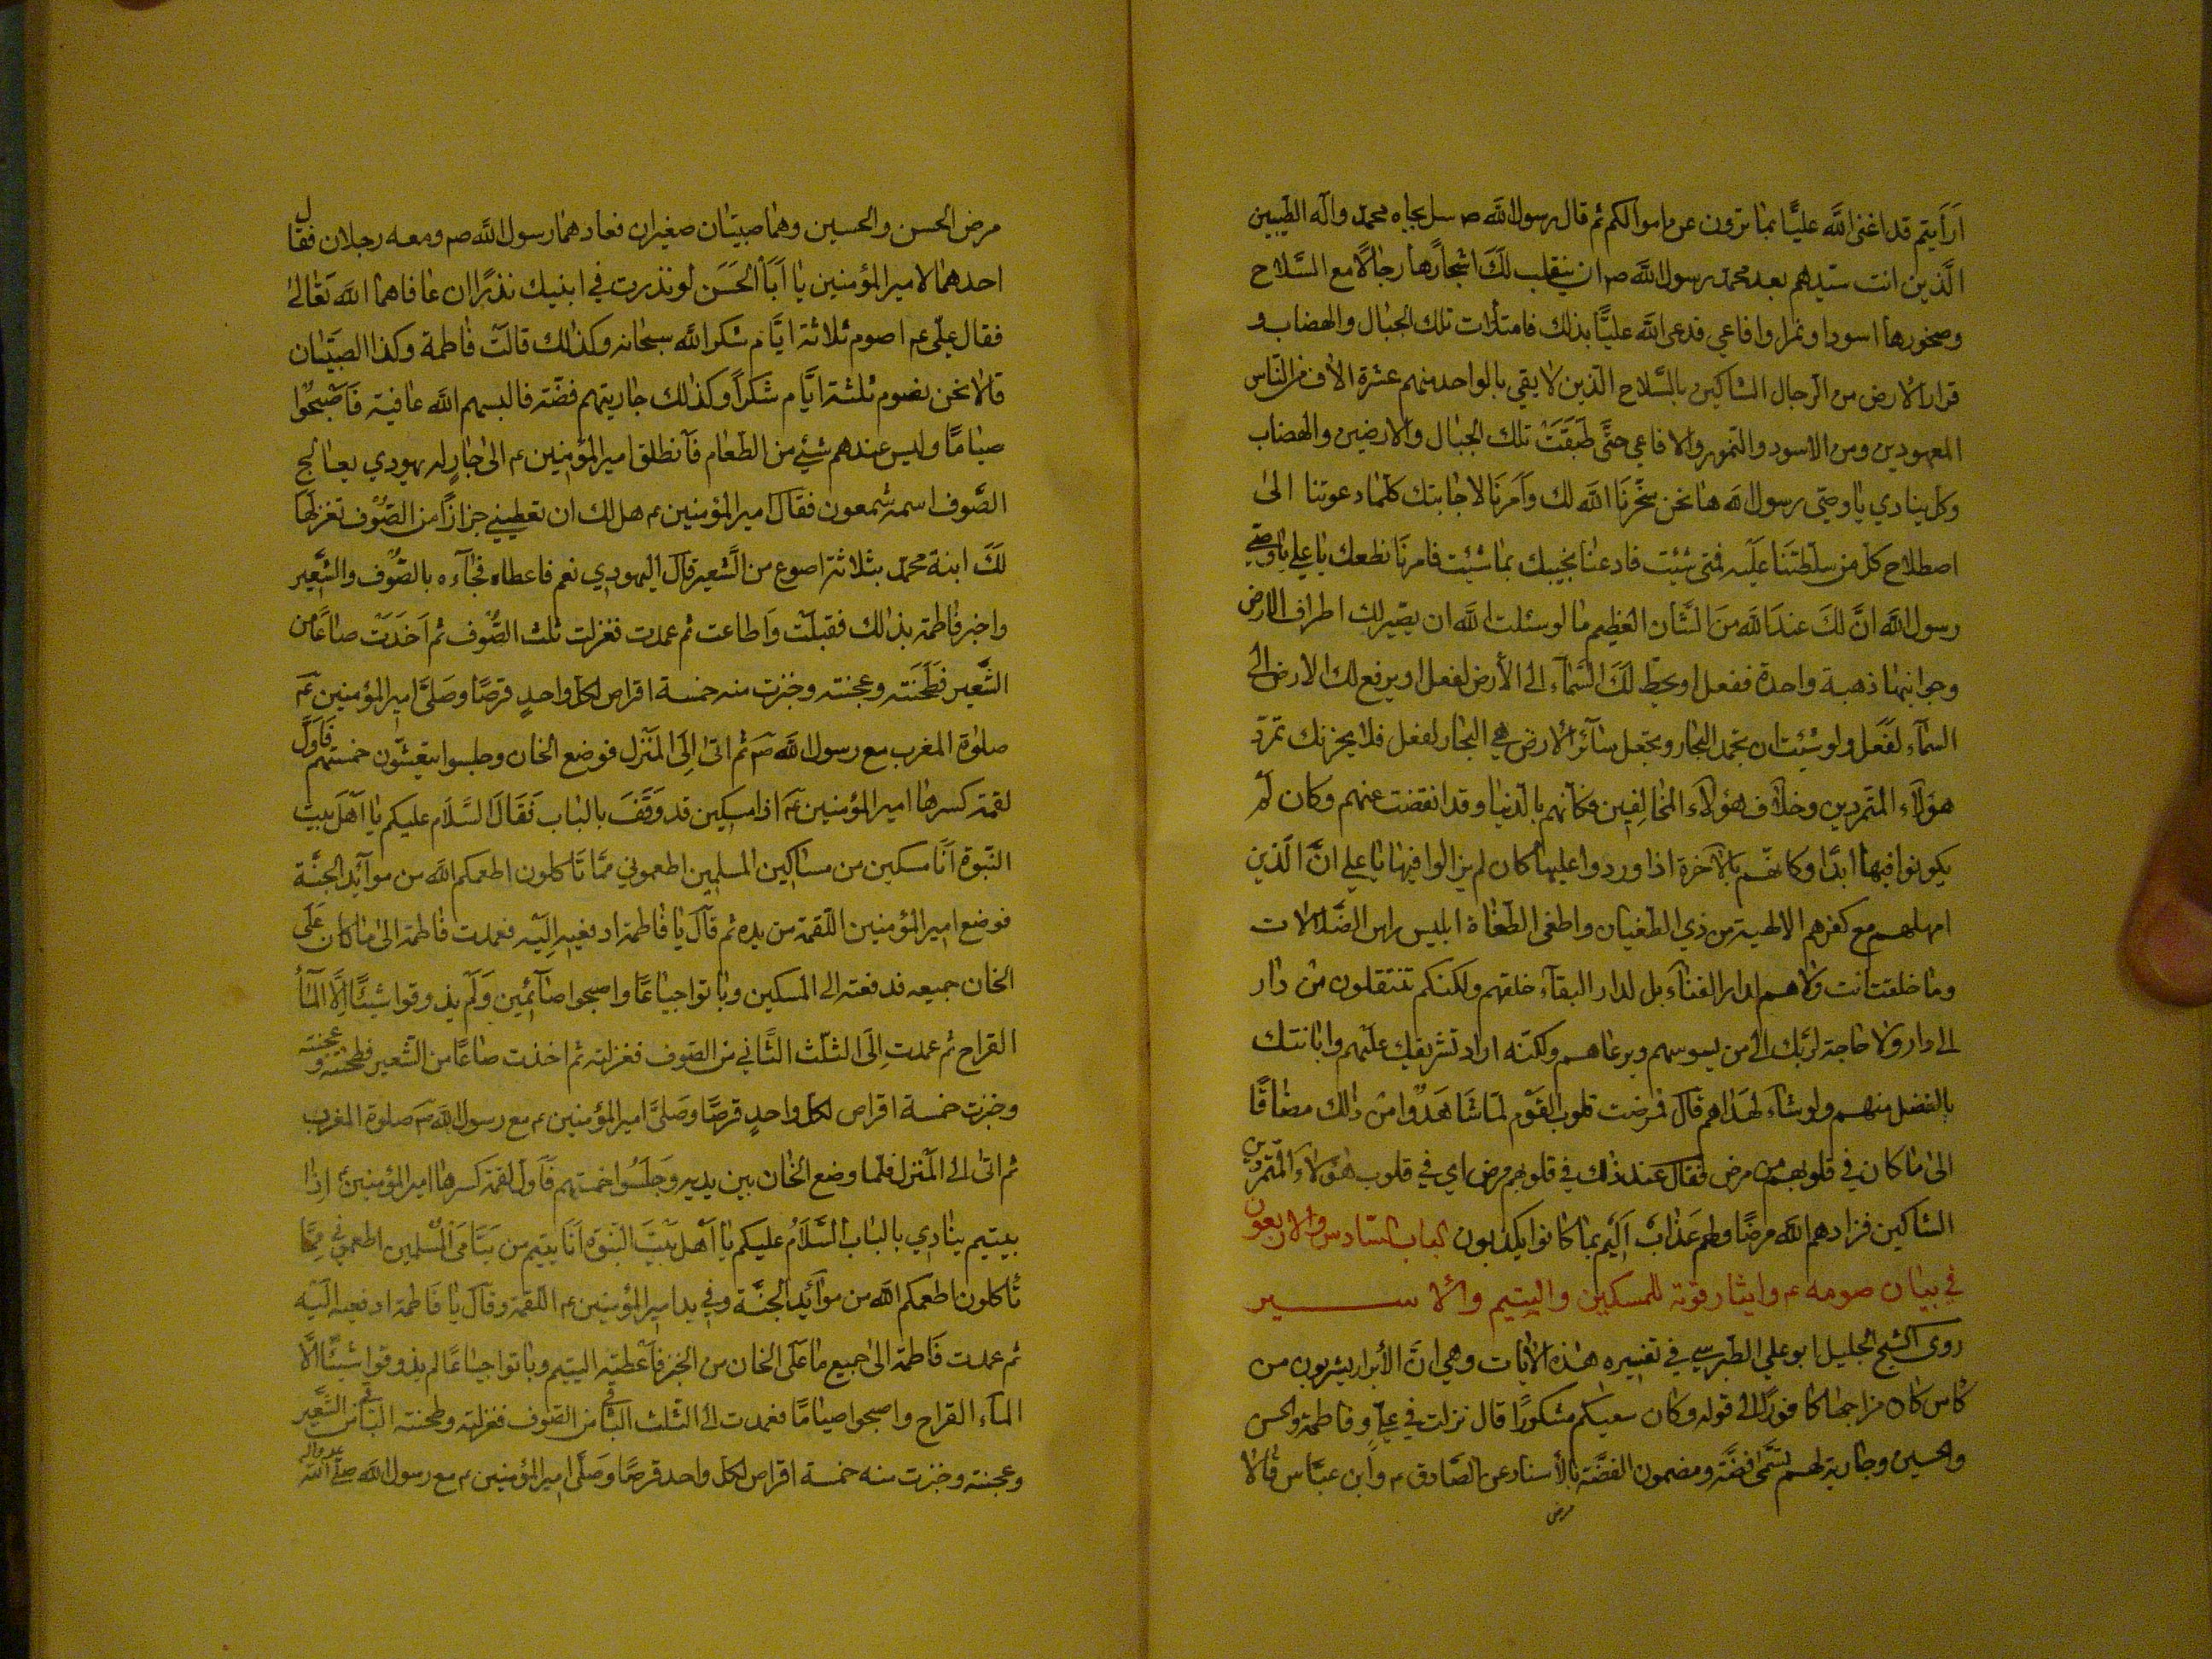 ارأيتم قد اغنى الله عليًّا بما ترون عن اموالكم ثم قال رسول الله ص سل بجاه محمد واله الطيبين
الّذين انت سيدهم بعد محمد رسول الله صم ان ينقلب لك اشجارها رجالا مع السّلاح
وصخورها اسودا ونمرا وافاعي فدعى الله عليًّا بذلك فامتلأت تلك الجبال والهضاب و
قرار الارض من الرجال الشاكين بالسّلاح الّذين لا يقي بالواحد منهم عشرة الاف من النّاس
المعهودين ومن الاسود والنمور والافاعي حتّى طبقت تلك الجبال والارضين والهضاب
وكل ينادي يا وصي رسول الله ها نحن سخّرنا الله لك وامرنا لاجابتك كلما دعوتنا الى
اصطلاح كل من سلطتنا عليه فمتى شئت فادعنا نجيبك بما شئت فامرنا نطعك يا علي يا وصي
رسول الله انّ لك عند الله من الشّان العظيم ما لو سئلت الله ان يصير لك اطراف الارض
وجوانبها ذهبة واحدة ففعل او يحط لك السّماء الى الأرض لفعل او يرفع لك الارض الى
السماء لفعل ولو شئت ان تجمد البحار وتجعل سائر الارض هي البحار لفعل فلا يحزنك تمرّد
هؤلاء المتمردين وخلاف هؤلاء المخالفين فكأنهم بالدنيا وقد انقضت عنهم وكان لم
يكونوا فيها ابدًا وكانهم بالآخرة اذا وردوا عليها كان لم يزالوا فيها يا علي انّ الّذين
امهلهم مع كفرهم الالهية من ذي الطغيان واطغى الطغاة ابليس راس الضّلالات
وما خلقت انت ولا هم لدار الفناء بل لدار البقاء خلقهم ولكنكم تنتقلون من دار
الى دار ولا حاجة لربك الى من يسوسهم ويرعاهم ولكنه اراد تشريفك عليهم وابانتك
بالفضل منهم ولو شاء لهداهم قال فمرضت قلوب القوم لما شاهدوا من ذلك مضافًا
الى ما كان في قلوبهم من مرض فقال عند ذلك في قلوبهم مرض اي في قلوب هؤلاء المتمردين
الشاكين فزادهم الله مرضًا ولهم عذاب اليم بما كانوا يكذبون الباب السّادس والاربعون
في بيان صومه ع وايثار قوته للمسكين واليتيم والاسير
روى الشيخ الجليل ابو علي الطبرسي في تفسيره هذه الايات وهي انّ الأبرار يشربون من
كاس كان مزاجها كافورًا الى قوله وكان سعيكم مشكورًا قال نزلت في علي وفاطمة والحسن
والحسين وجارية لهم تسمّى فضّة ومضمون القصّة بالأسناد عن الصّادق ع وابن عبّاس قالا
مرض
مرض الحسن والحسين وهما صبيّان صغيران فعادهما رسول الله صم ومعه رجلان فقال
احدهما لامير المؤمنين يا ابا الحسن لو نذرت في ابنيك نذرًا ان عافاهما الله تعالى
فقال علي ع اصوم ثلاثة ايّام شكر الله سبحانه وكذلك قالت فاطمة وكذا الصبيّان
قالا نحن نصوم ثلثة ايّام شكرا وكذلك جاريتهم فضّة فالبسهم الله عافية فاصبحوا
صيامًا وليس عندهم شيئ من الطعام فانطلق امير المؤمنين ع الى جار له يهودي يعالج
الصّوف اسمه شمعون فقال امير المؤمنين ع هل لك ان تعطيني جزازًا من الصّوف تغزلها
لك ابنة محمد بثلاثة اصوع من الشّعير قال اليهودي نعم فاعطاه فجاءه بالصّوف والشّعير
واخبر فاطمة بذلك فقبلت واطاعت ثم عمدت فغزلت ثلث الصّوف ثم اخذت صاعًا من
الشّعير فطحنته وعجنته وخبزت منه خمسة اقراص لكل واحد قرصًا وصلّى امير المؤمنين ع
صلوة المغرب مع رسول الله ص ثم اتى الى المنزل فوضع الخان وجلسوا يتعشّون خمستهم فاول
لقمة كسرها امير المؤمنين ع اذا مسكين قد وقف بالباب فقال السّلام عليكم يا اهل بيت
النّبوة انا مسكين من مساكين المسلمين اطعموني ممّا تاكلون اطعمكم الله من موائد الجنّة
فوضع امير المؤمنين اللقمة من يده ثم قال يا فاطمة ادفعيه اليه فعمدت فاطمة الى ما كان على
الخان جميعه فدفعته الى المسكين وباتوا جياعًا واصبحوا صآئمين ولم يذوقوا شيئًا الّا المآء
القراح ثم عمدت الى الثلث الثّاني من الصّوف فغزلته ثم اخذت صاعًا من الشّعير فطحنته وعجنته
وخبزت خمسة اقراص لكل واحد قرصًا وصلّى امير المؤمنين ع مع رسول الله صم صلوة المغرب
ثم اتى الى المنزل فلما وضع الخان بين يديه وجلسوا خمستهم فاول لقمة كسرها امير المؤمنين ع اذا
بيتيم ينادي بالباب السّلام عليكم يا اهل بيت النّبوة انا يتيم من يتامى المسلمين اطعموني ممّا
تأكلون اطعمكم الله من موائد الجنّة وفي يد امير المؤمنين ع اللقمة وقال يا فاطمة ادفعيه اليه
ثم عمدت فاطمة الى جميع ما على الخان من الخبز فاعطته اليتيم وباتوا جياعًا لم يذوقوا شيئًا الّا
المآء القراح واصبحوا صيامًا فعمدت الى الثّلث الباقي من الصّوف فغزلته وطحنته الباقي من الشّعير
وعجنته وخبزت منه خمسة اقراص لكل واحد قرصًا وصلّى امير المؤمنين ع مع رسول الله صلى الله عليه واله